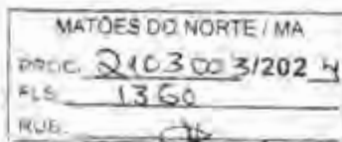 MATÕES DO NORTE / MA
PROC. 2103003/2024
FLS. 1360
RUB.